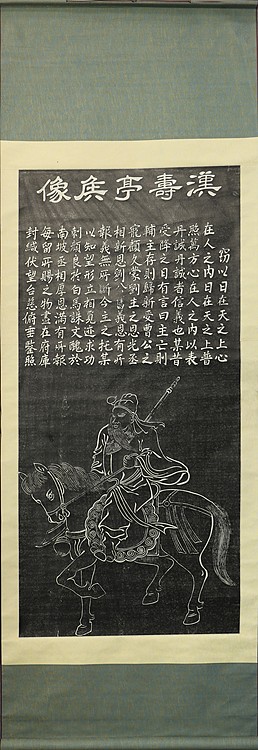 漢壽亭侯像
竊以日在天之上心
在人之内日在天之上普
照萬方心在人之内以表
丹誠丹誠者信義也某昔
受降之日有言曰主亡則
輔主存則歸新受曹公之
寵顧久蒙劉主之恩光丞
相新恩劉公舊義恩有所
報義無所斷今主之耗某
以知望形立相覓迹求功
刺顏良於白馬誅文醜於
南坡丞相厚恩滿有所報
每留所賜之物盡在府庫
封緘伏望台慈俯垂鑒照